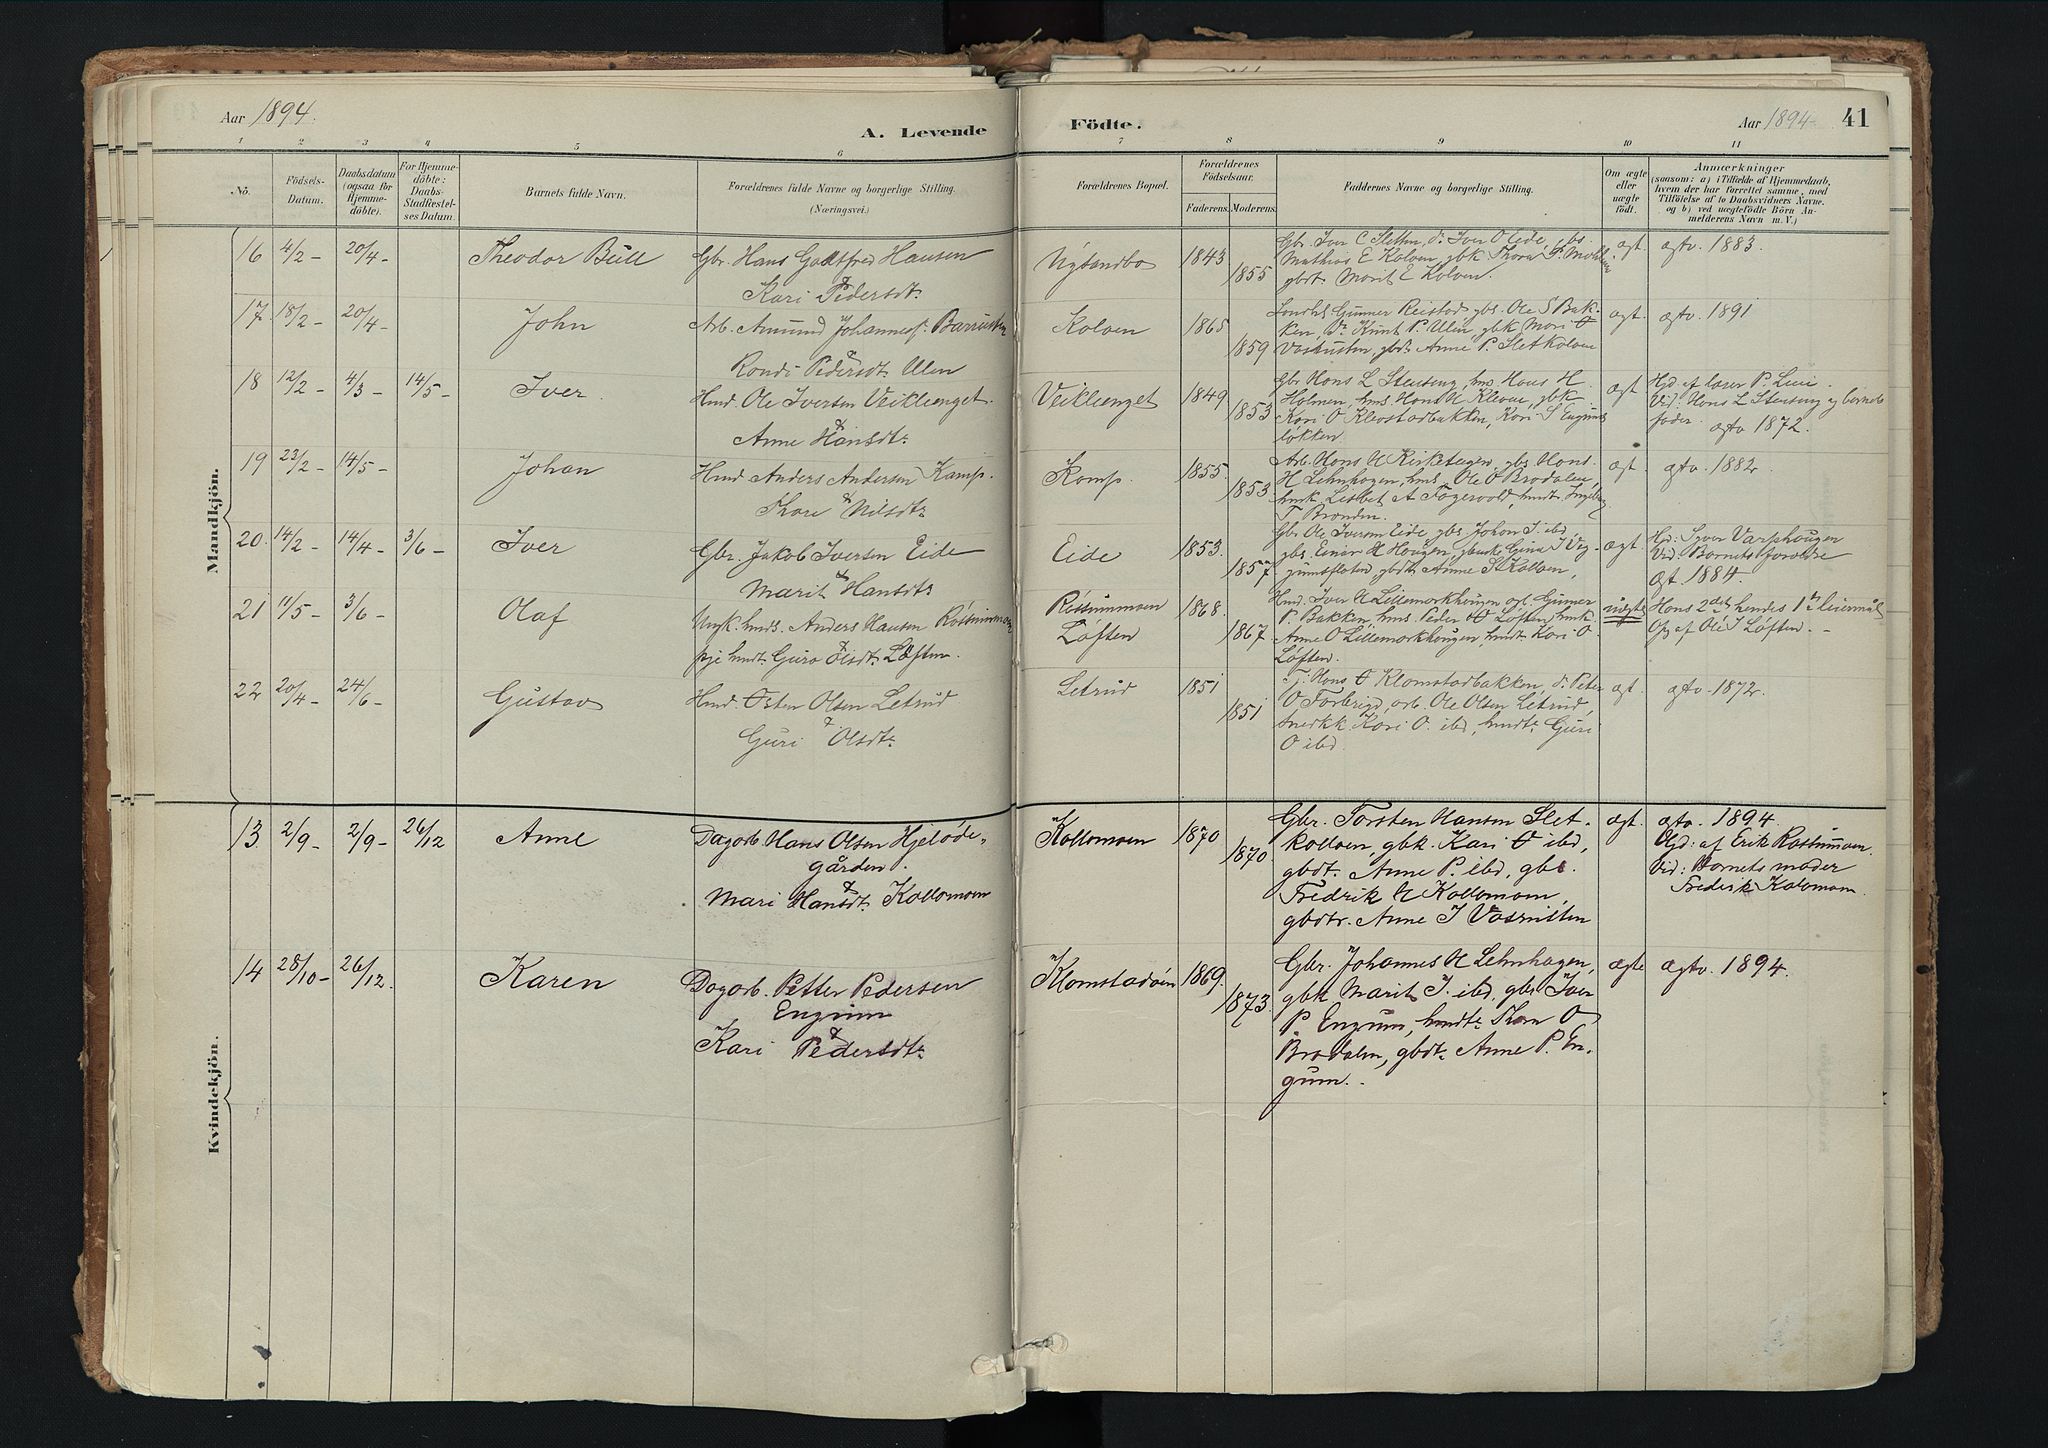 Aar 1894.
A. Levende
Födte.
Aar 1894
41
1 2 3 4 5 6 7 8 9 10 11
Nö.
Födsels-
Datum.
Daabsdatum
(ogsaa for
Hjemme-
döbte).
For Hjemme-
döbte:
Daabs-
Stadfæstel-
ses Datum.
Barnets fulde Navn.
Forældrenes fulde Navne og borgerlige Stilling.
(Næringsvei.)
Forældrenes Bopæl.
Forældrenes
Födselsaar.
Faderens. Moderens.
Faddernes Navne og borgerlige Stilling.
Om ægte
eller
uægte
födt.
Anmærkninger
(saasom: a) i Tilfælde af Hjemmedaab,
hvem der har forrettet samme, med
Tilföielse af to Daabsvidners Navne.
og b) ved uægtefödte Börn An-
melderens Navn m. V.)
Mandkjön.
16 4/2 - 20/4 - Theodor Bull Gbr. Hans Godtfred Hansen
&
Kari Pedersdt.
Nysandbo 1843
1855
Gbr. Iver C Sletten, do Iver O Eide, gbs.
Mathias E Kolven, gbk Thora P. Mohlum
gbdt. Marit E Kolven.
ægt. ægtv. 1883.
17. 18/2 - 20/4 - John Arb. Amund Johannesf.
&
Rondi Pedersdt. Ulen
Kolven 1865
1859
Gunner Reistad gbs. Ole S Bak-
ken, do Knut P. Ulen, gbk Mari O
gbdt. Anne P. Sletkolven
ægt. ægtv. 1891
18 12/2 - 4/3 - 14/5 - Iver Hmd. Ole Iversen Veiklenget.
&
Anne Hansdt.
Veiklenget 1849
1853
Gbr Hans L Stenseng, hms Hans H.
Holmen, hms Hans H Kleven, gbk
Kari O Klevstadbakken, Kari S Engums
løkken.
ægt Hjd. af lærer P. Lien.
Vid: Hans L Stenseng og barnets
fader. ægtv 1872.
19 23/2 - 14/5 - Johan Hmd Anders Andersen Kamp.
&
Thore Nilsdt.
Kamp. 1855.
1853
Arb. Hans H Kirketeigen, gbs Hans
H Lehnhagen, hms Ole O Brodalen,
hmk Lisbet A Fogervold, hmdt. Ingeborg
T Branden.
ægt. ægtv. 1882.
20. 14/2 - 14/4 - 3/6 - Iver Gbr. Jakob Iversen Eide
&
Marit Hansdt.
Eide 1853.
1857
Gbr Ole Iversen Eide gbs. Johan I ibd,
gbs. Einar H Haugen, Gina I Vig-
gumsfloten gbdt Anne S Kolven,
ægt. Hjd: Syver Varphaugen
Vid: Barnets foreldre
ægt. 1884.
21 11/5 - 3/6 - Olaf Ungk. hmds. Anders Hansen Røssummoen
&
pje hmdt. Guro Olsdt. Løften.
Røssummoen
Løften
1868.
1867.
Hmd. Iver H Lillemorkhaugen Gunner
P. Bakken, hms. Peder O Løften hmk.
Anne O Lillemorkhaugen, hmdt. Kari O.
Løften.
uægte Hans 2det hendes 1ste leiermål
Op. af Ole I Løften. -
22 20/4 - 24/6 - Gustav Hmd. Østen Olsen Letrud
&
Guri Olsdt.
Letrud 1851
1851
Tj. Hans O Klomstadbakken, do Peter
O Forbrigd, arb. Ole Olsen Letrud,
snedkk Kari O. ibd, hmdt. Guri
O ibd.
ægt. ægtv. 1872.
Kvindekjön.
13 2/9 - 2/9 - 26/12 Anne Dagarb. Hans Olsen Hjeløde-
gården.
&
Mari Hansdt. Kollomoen
Kollomoen 1870
1870
Gbr. Torsten Hansen Slet-
kolven, gbk. Kari O ibd,
gbdt. Anne P. ibd, gbs.
Fredrik H Kollomoen,
gbdtr. Anne I
ægt. ægtv. 1894.
Hjd: af Erik Røssummoen.
Vid: Barnets moder
Fredrik Kolomoen.
14 28/10 - 26/12. Karen Dagarb. Petter Pedersen
Engum
&
Kari Pedersdt.
Klomstadøien 1869.
1873.
Gbr. Johannes H Lehnhagen,
gbk Marit I. ibd, gbs. Iver
P. Engum, hmdt. Thora O
Brodalen, gbdt. Anne P. En-
gum. -
ægte ægtv. 1894.